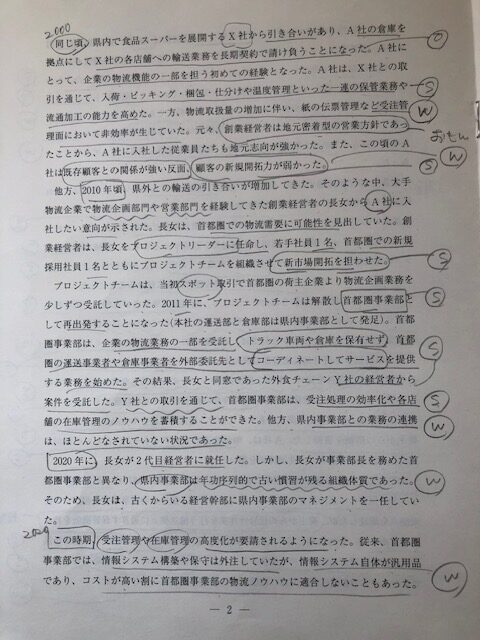 2000
同じ頃、県内で食品スーパーを展開するX社から引き合いがあり、A社の倉庫を
O
拠点にしてX社の各店舗への輸送業務を長期契約で請け負うことになった。A社に
とって、企業の物流機能の一部を担う初めての経験となった。A社は、X社との取
引を通じて、入荷・ピッキング・梱包・仕分けや温度管理といった一連の保管業務や
S
流通加工の能力を高めた。一方、物流取扱量の増加に伴い、紙の伝票管理など受注管
W
理面において非効率が生じていた。元々、創業経営者は地元密着型の営業方針であっ
たことから、A社に入社した従業員たちも地元志向が強かった。また、この頃のA
W
社は既存顧客との関係が強い反面、顧客の新規開拓力が弱かった。
S
他方、2010年頃、県外との輸送の引き合いが増加してきた。そのような中、大手
物流企業で物流企画部門や営業部門を経験してきた創業経営者の長女からA社に入
社したい意向が示された。長女は、首都圏での物流需要に可能性を見出していた。創
業経営者は、長女をプロジェクトリーダーに任命し、若手社員1名、首都圏での新規
採用社員1名とともにプロジェクトチームを組織させて新市場開拓を担わせた。
S
プロジェクトチームは、当初スポット取引で首都圏の荷主企業より物流企画業務を
少しずつ受託していった。2011年に、プロジェクトチームは解散し首都圏事業部と
S
して再出発することになった(本社の運送部と倉庫部は県内事業部として発足)。首都
圏事業部は、企業の物流業務の一部を受託し、トラック車両や倉庫を保有せず、首都
圏の運送事業者や倉庫事業者を外部委託先としてコーディネートしてサービスを提供
S
する業務を始めた。その結果、長女と同窓であった外食チェーンY社の経営者から
案件を受託した。Y社との取引を通じて、首都圏事業部は、受注処理の効率化や各店
S
舗の在庫管理のノウハウを蓄積することができた。他方、県内事業部との業務の連携
W
は、ほとんどなされていない状況であった。
2020年に、長女が2代目経営者に就任した。しかし、長女が事業部長を務めた首
都圏事業部と異なり、県内事業部は年功序列的で古い慣習が残る組織体質であった。
W
そのため、長女は、古くからいる経営幹部に県内事業部のマネジメントを一任してい
た。
この時期、受注管理や在庫管理の高度化が要請されるようになった。従来、首都圏
事業部では、情報システム構築や保守は外注していたが、情報システム自体が汎用品
であり、コストが高い割に首都圏事業部の物流ノウハウに適合しないこともあった。
W
— 2 —